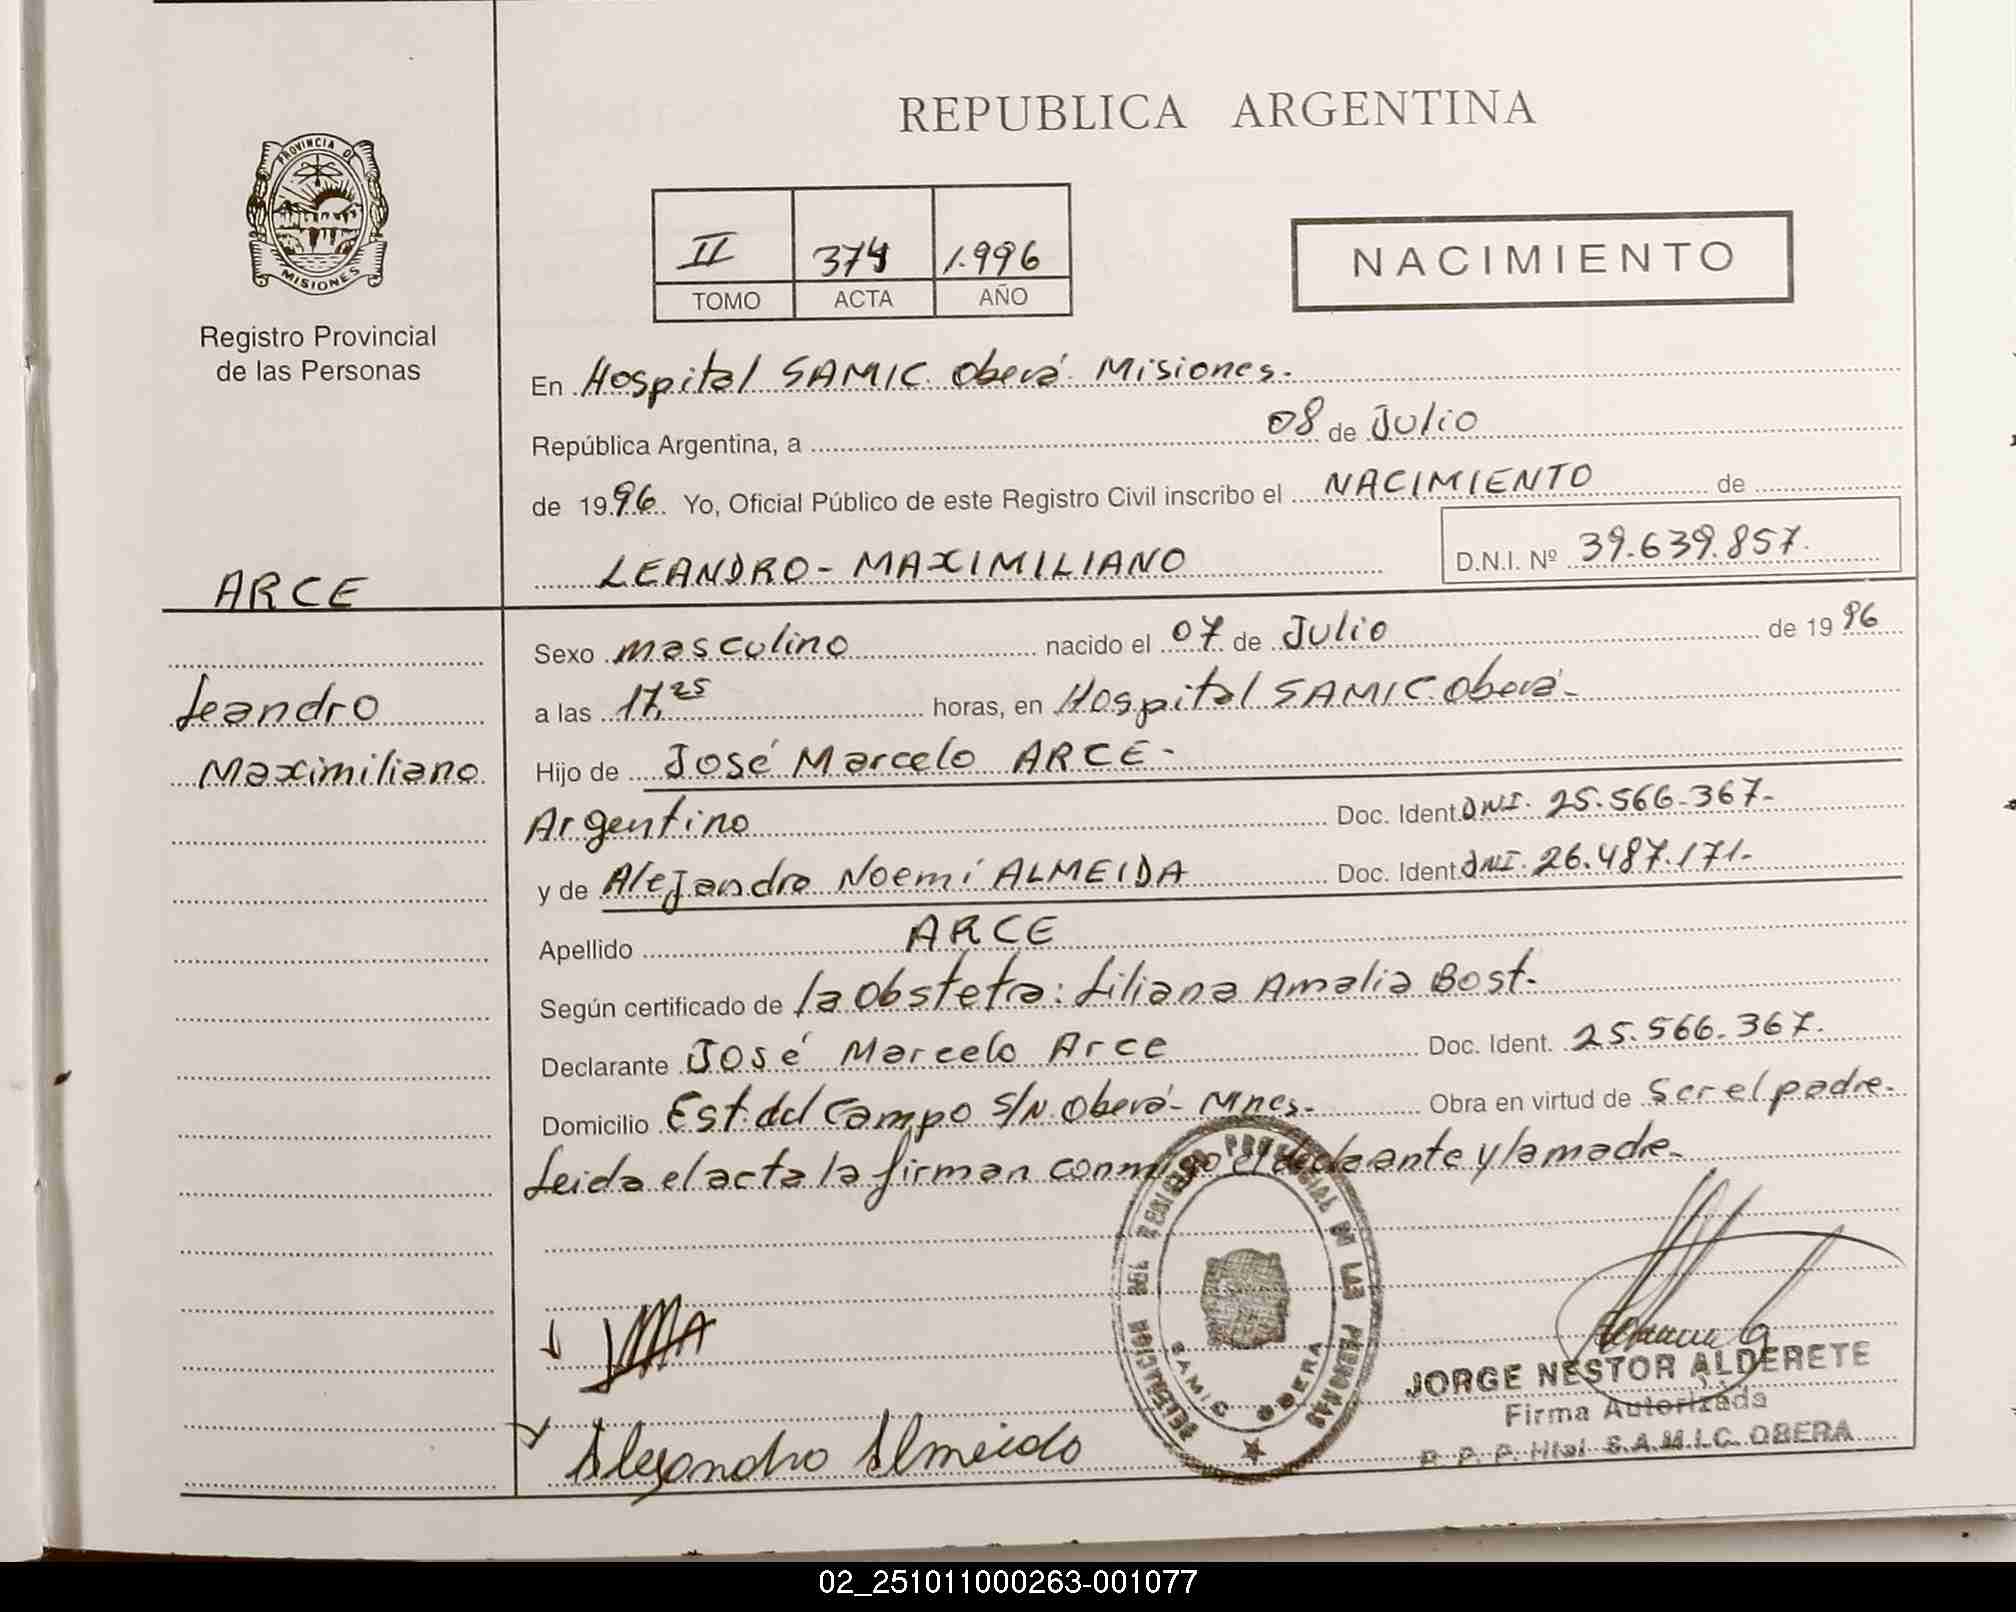 REPUBLICA ARGENTINA
PROVINCIA DE
MISIONES
Registro Provincial
de las Personas
II 374 1.996
TOMO ACTA AÑO
NACIMIENTO
En Hospital SAMIC Oberá Misiones.
República Argentina, a 08 de Julio
de 1996 Yo, Oficial Público de este Registro Civil inscribo el NACIMIENTO de
LEANDRO - MAXIMILIANO D.N.I. Nº 39.639.857.
ARCE
Leandro
Maximiliano
Sexo masculino nacido el 07 de Julio de 1996
a las 17,25 horas, en Hospital SAMIC Oberá-
Hijo de José Marcelo ARCE-
Argentino Doc. Ident. DNI. 25.566.367-
y de Alejandra Noemí ALMEIDA Doc. Ident. DNI. 26.487.171-
Apellido ARCE
Según certificado de la Obstetra: Liliana Amalia Bost-
Declarante José Marcelo Arce Doc. Ident. 25.566.367.
Domicilio Est. del Campo S/N Oberá- Mnes- Obra en virtud de ser el padre.
Leida el acta la firman conmigo el declaante y la madre-
DELEGACION DEL REGISTRO PROVINCIAL DE LAS PERSONAS
SAMIC OBERA
JORGE NESTOR ALDERETE
Firma Autorizada
R. P. P. Htal S.A.M.I.C. OBERA
Alejandra Almeida
02_251011000263-001077